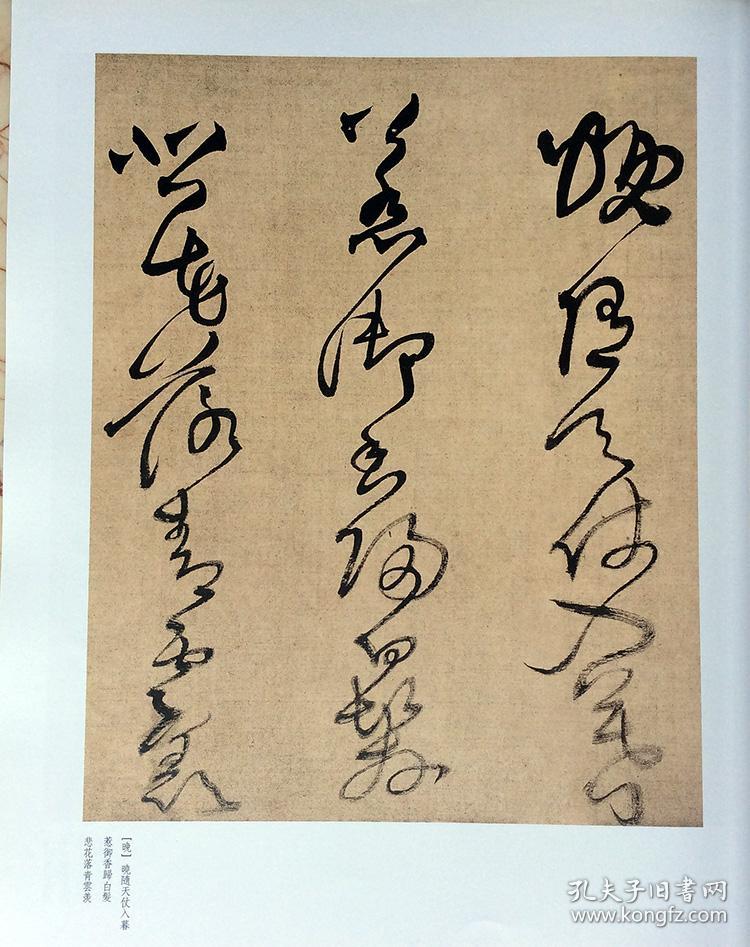 曉隨天仗入暮
惹御香歸白髮
悲花落青雲羨
[晚] 曉隨天仗入暮
惹御香歸白髮
悲花落青雲羨
孔夫子旧书网
www.kongfz.com